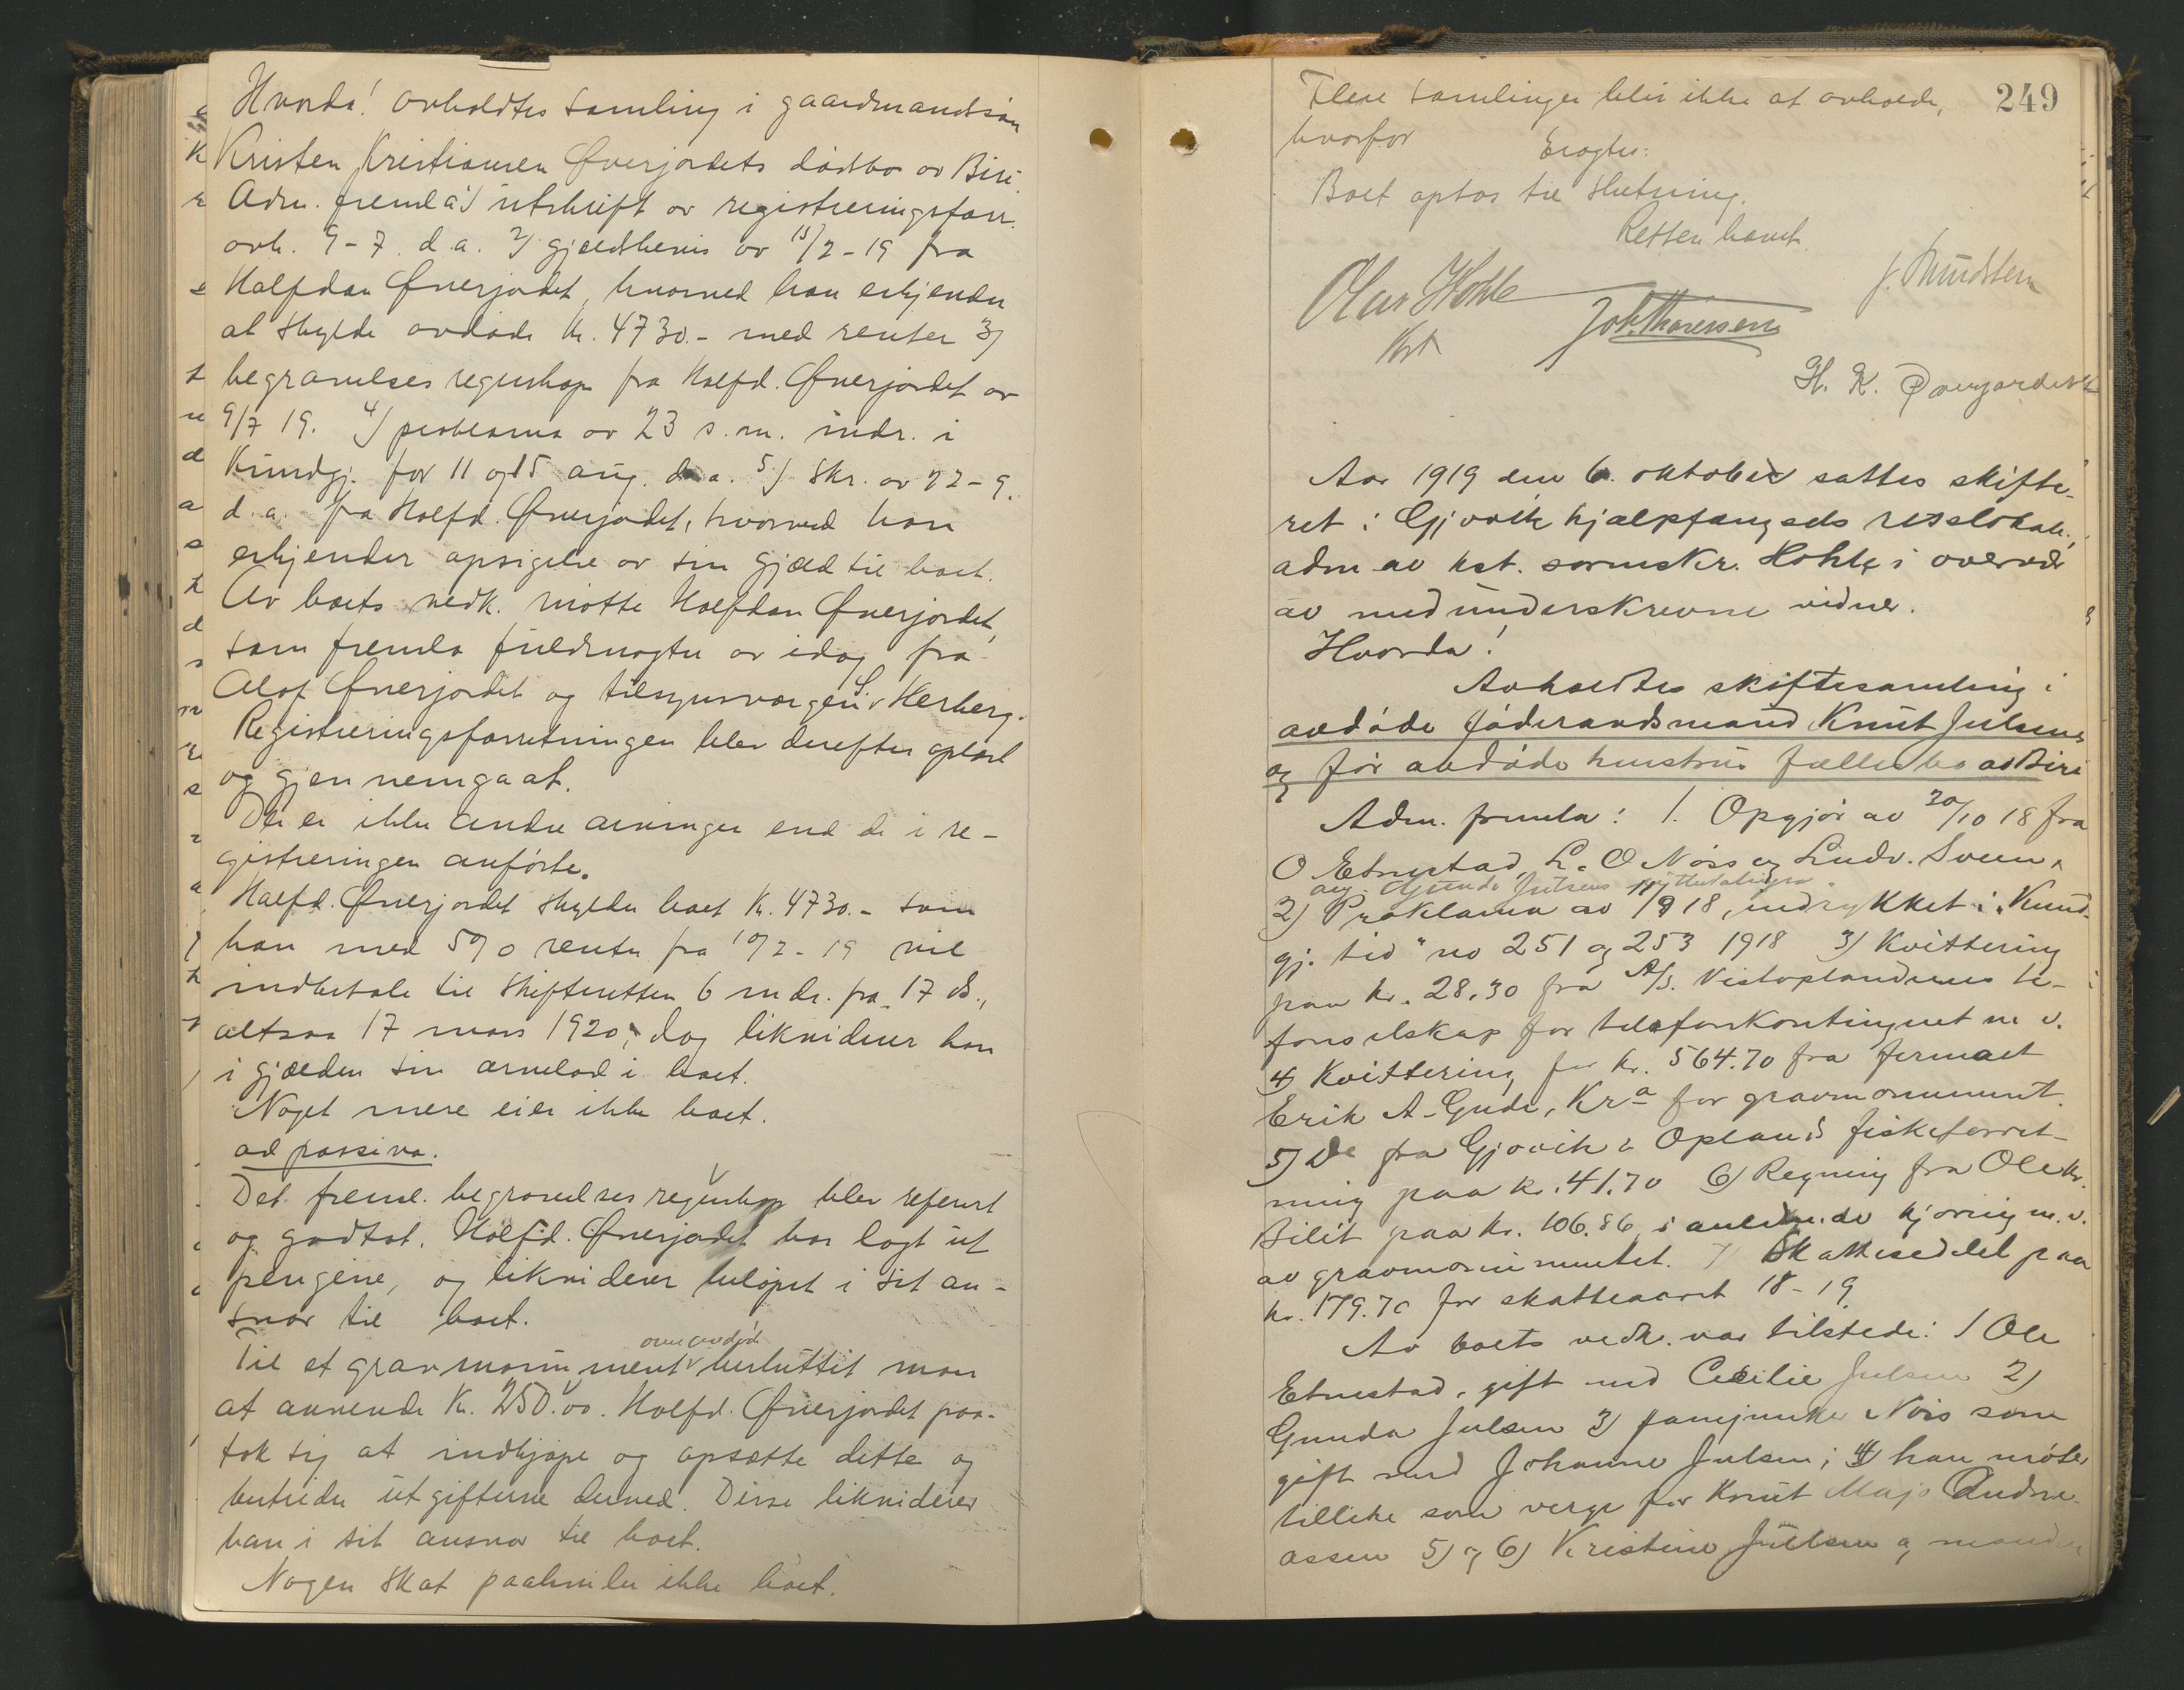 Hvorda! avholdtes samling i gaardmandsøn
Kristen Kristiansen Øverjordets dødsbo av Biri.
Adm. fremla 1) utskrift av registreringsforr.
avh. 9-7 d.a. 2) gjeldsbevis av 15/2-19 fra
Halfdan Øverjordet, hvorved han erkjender
at skylde avdøde kr. 4730.- med renter 3)
begravelsesregnskap fra Halfd. Øverjordet av
9/7 19. 4) proklama av 23 s.m. indr. i
Kundgj. for 11 og 15 aug. d.a. 5) Skr. av 22-9.
d.a. fra Halfd. Øverjordet, hvorved han
erkjender opsigelse av sin gjæld til boet.
Av boets vedk. møtte Halfdan Øverjordet,
som fremla fuldmagter av idag fra
Olof Øverjordet og tilsynsvergen S. Herberg.
Registreringsforretningen blev derefter oplæst
og gjennemgaat.
Der er ikke andre arvinger end de i re-
gistreringen anførte.
Halfd. Øverjordet skylder boet kr. 4730.- som
han med 5% rente fra 10/2-19 vil
indbetale til skifteretten 6 mdr. fra 17 ds.,
altsaa 17 mars 1920, dog likviderer han
i gjælden sin arvelod i boet.
Noget mere eier ikke boet.
ad passiva.
Det freml. begravelsesregnskap blev referert
og godtat. Halfd. Øverjordet har lagt ut
pengene, og likviderer beløpet i sit an-
svar til boet.
over avdøde
Til et gravmonument besluttet man
at anvende kr. 250.00. Halfd. Øverjordet paa-
tok sig at indkjøpe og opsætte dette og
bestride utgifterne derved. Disse likviderer
han i sit ansvar til boet.
Nogen skat paahviler ikke boet.
249
Flere samlinger blir ikke at avholde,
hvorfor
Eragtes:
Boet optas til slutning.
Retten hævet.
Olav Hohle
Kst
Joh. Thoresen
J. Knudsen
H. K. Øverjordet
Aar 1919 den 6. oktober sattes skifte-
ret i Gjøvik hjælpefængsels retslokale,
adm av kst. sorenskr. Hohle i overvær
av medunderskrevne vidner.
Hvorda!
Avholdtes skiftesamling i
avdøde føderaadsmand Knut Julsens
og før avdøde hustrus fællesbo av Biri
Adm. fremla: 1. Opgjør av 30/10 18 fra
O Etnestad, L. O Nøss og Ludv. Sveen,
ang. Gunda Julsens
2) Proklama av 1/9 18, indrykket i "Kund-
gj. tid" no 251 og 253 1918 3) Kvittering
paa kr. 28.30 fra A/S. Vestoplandenes te-
fonselskap for telefonkontingent m v.
4) Kvittering for kr. 564.70 fra firmaet
Erik A. Gude, Kra for gravmonument.
5) Do fra Gjøvik & Opland fiskeforret-
ning paa kr. 41.70 6) Regning fra Ole Kr.
Bilit paa kr. 106.86 i anledn. av kjøring m. v.
av gravmonumentet. 7 Skatteseddel paa
kr. 179.70 for skatteaaret 18-19.
Av boets vedk. var tilstede: 1 Ole
Etnestad, gift med Cecilie Julsen 2)
Gunda Julsen 3) fanejunker Nøss som
gift med Johanne Julsen; 4) han møter
tillike som verge for Knut Majo Andre-
assen 5) og 6) Kristine Julsen og manden